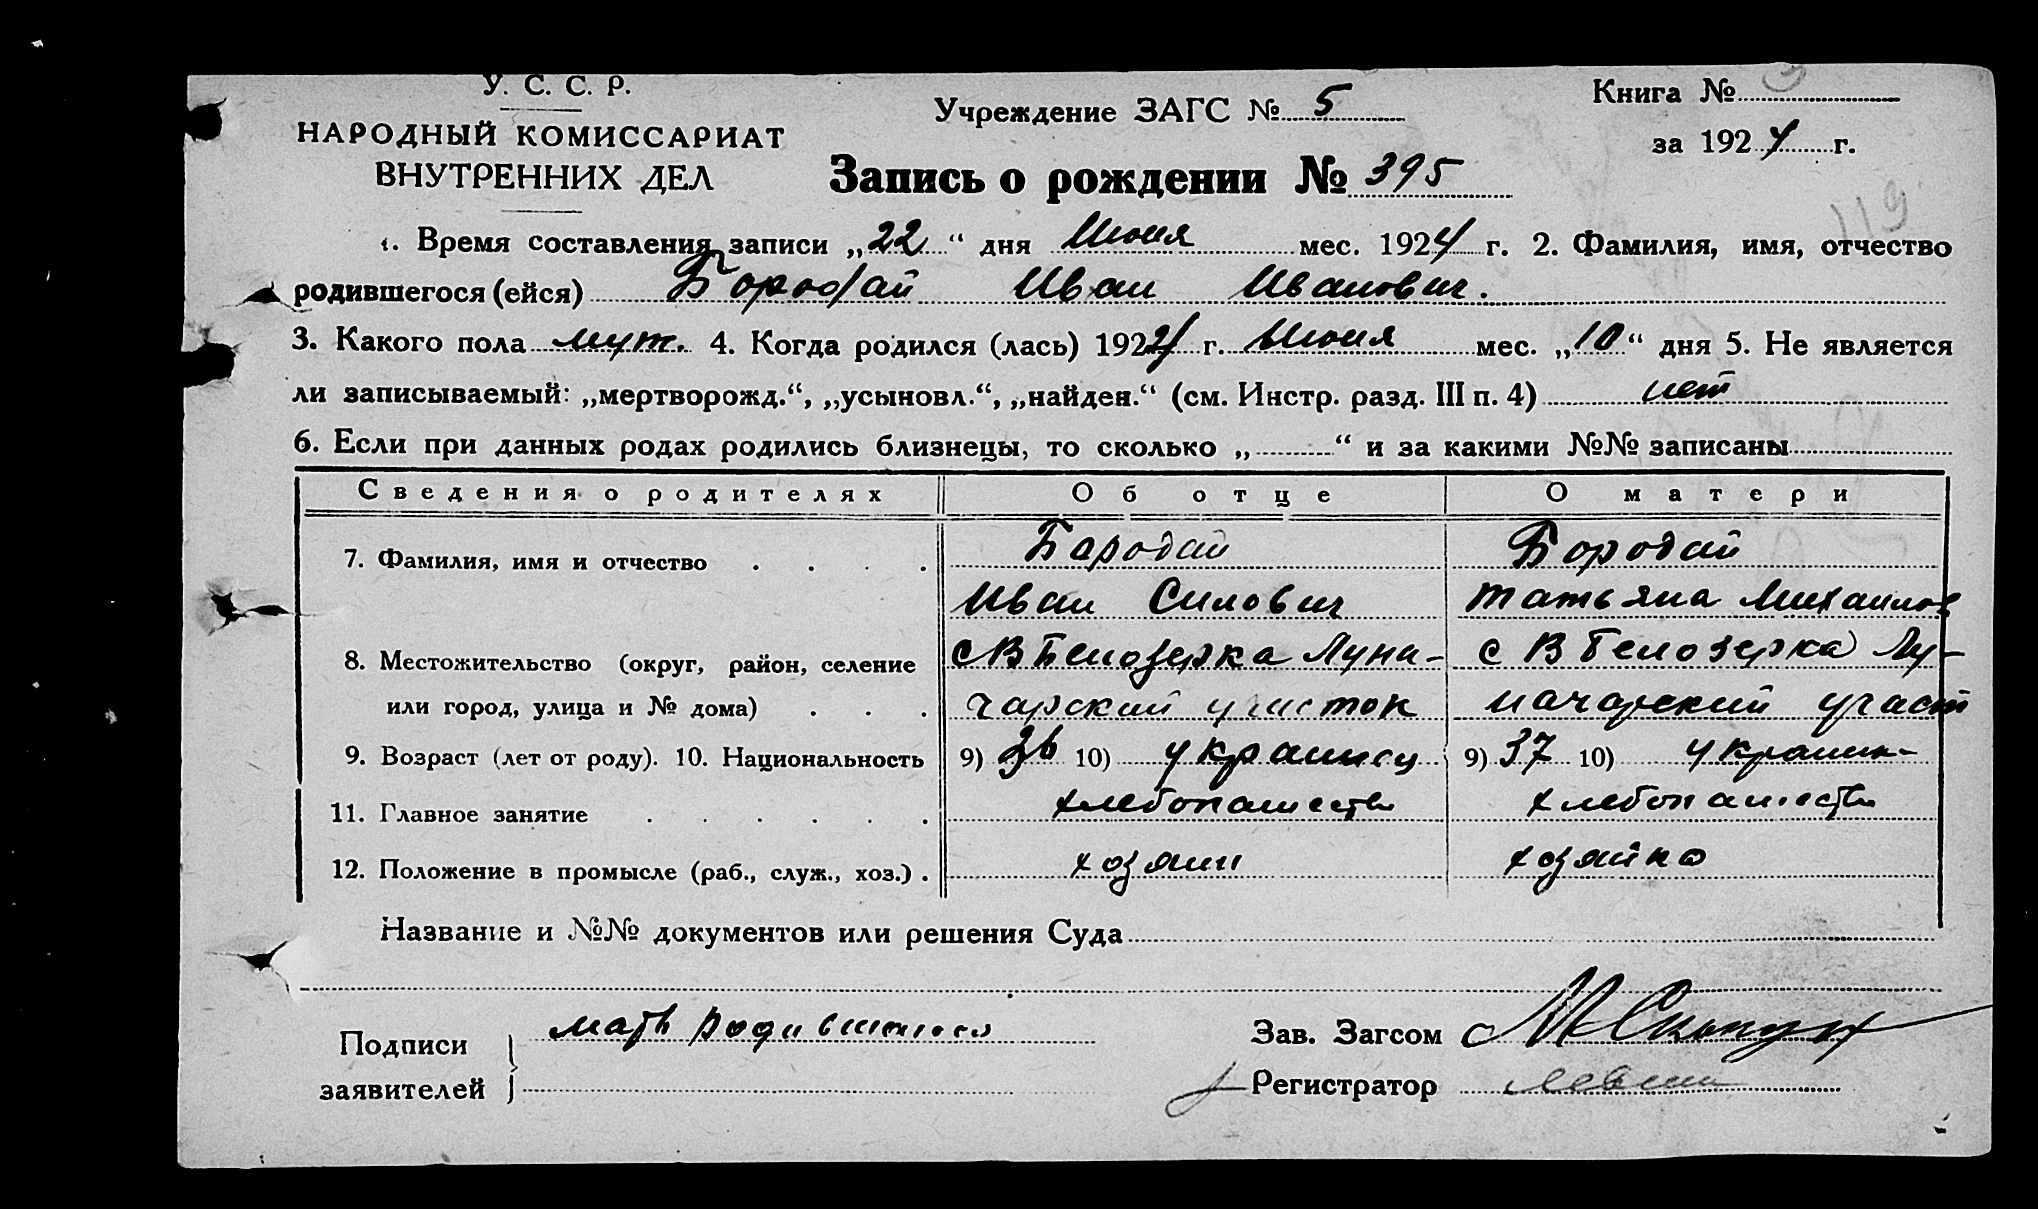 У. С. С. Р.
НАРОДНЫЙ КОМИССАРИАТ
ВНУТРЕННИХ ДЕЛ
Учреждение ЗАГС № 5
Книга №
за 1924 г.
Запись о рождении № 395
119
1. Время составления записи „22“ дня Июня мес. 1924 г. 2. Фамилия, имя, отчество
родившегося (ейся) Бородай Иван Иванович.
3. Какого пола муж. 4. Когда родился (лась) 1924 г. Июня мес. „10“ дня 5. Не является
ли записываемый: „мертворожд.“, „усыновл.“, „найден.“ (см. Инстр. разд. III п. 4) нет
6. Если при данных родах родились близнецы, то сколько „ “ и за какими №№ записаны
Сведения о родителях Об отце О матери
7. Фамилия, имя и отчество Бородай Бородай
Иван Силович Татьяна Михайлов
8. Местожительство (округ, район, селение с В Белозерка Луна- с В Белозерка Лу-
или город, улица и № дома) чарский участок начарский участ
9. Возраст (лет от роду). 10. Национальность 9) 36 10) украинец 9) 37 10) украин-
11. Главное занятие хлебопашеств хлебопашеств
12. Положение в промысле (раб., служ., хоз.) хозяин хозяйка
Название и №№ документов или решения Суда
Подписи заявителей мать родившегося
Зав. Загсом
Регистратор